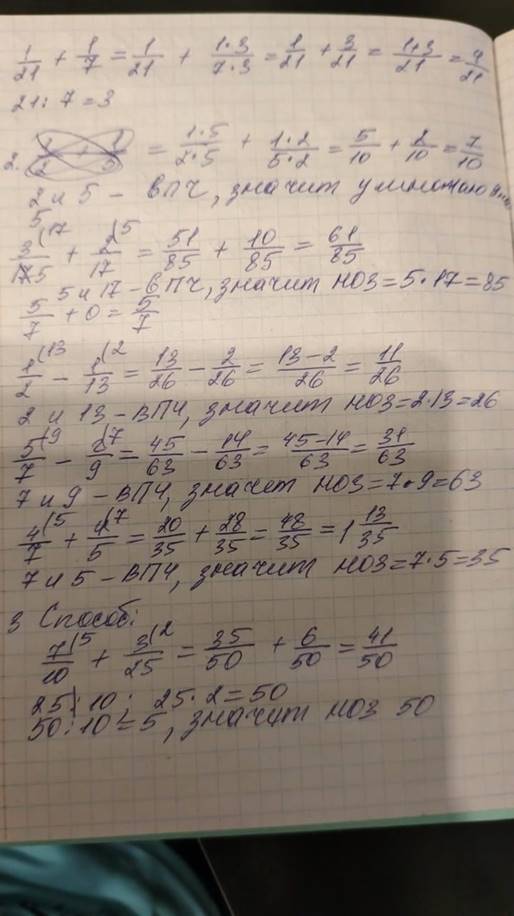 1/21 + 1/7 = 1/21 + 1·3/7·3 = 1/21 + 3/21 = 1+3/21 = 4/21
21:7=3
2. = 1·5/2·5 + 1·2/5·2 = 5/10 + 2/10 = 7/10
2 и 5 - ВПЧ, значит умножаю
3(17/5 + 2(5/17 = 51/85 + 10/85 = 61/85
5 и 17 - ВПЧ, значит НОЗ=5·17=85
5/7 + 0 = 5/7
1(13/2 - 1(2/13 = 13/26 - 2/26 = 13-2/26 = 11/26
2 и 13 - ВПЧ, значит НОЗ=2·13=26
5(9/7 - 2(7/9 = 45/63 - 14/63 = 45-14/63 = 31/63
7 и 9 - ВПЧ, значит НОЗ=7·9=63
4(5/7 + 4(7/5 = 20/35 + 28/35 = 48/35 = 1 13/35
7 и 5 - ВПЧ, значит НОЗ=7·5=35
3 Способ:
7(5/10 + 3(2/25 = 35/50 + 6/50 = 41/50
25 10; 25·2=50
50:10=5, значит НОЗ 50